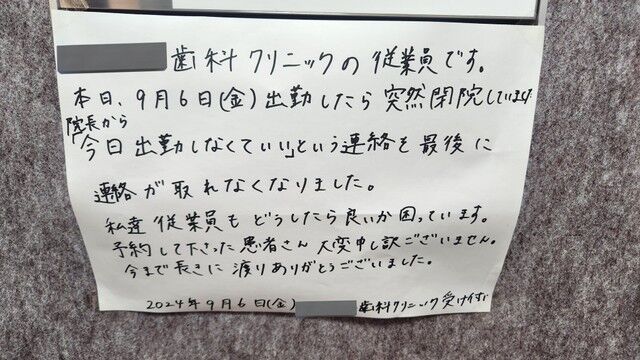 歯科クリニックの従業員です。
本日、9月6日(金)出勤したら突然閉院しています
院長から
「今日出勤しなくていい」という連絡を最後に
連絡が取れなくなりました。
私達従業員もどうしたら良いか困っています。
予約して下さった患者さん大変申し訳ございません。
今まで長きに渡りありがとうございました。
2024年9月6日(金) 歯科クリニック受け付け